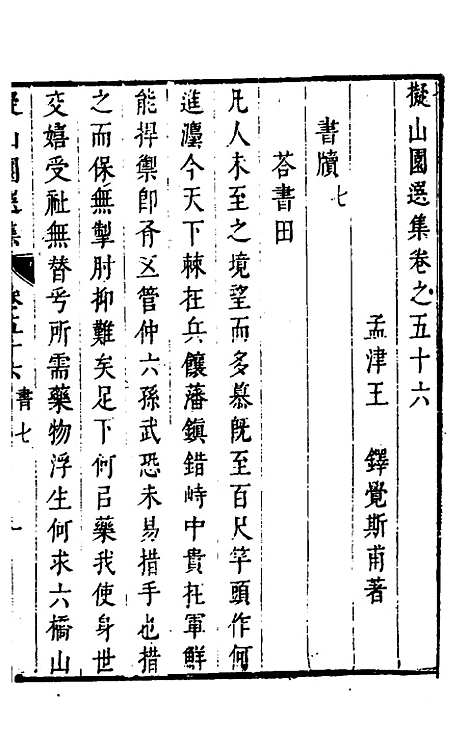 擬山園選集卷之五十六
孟津王　鐸覺斯甫著
書牘七
荅書田
凡人未至之境望而多慕旣至百尺竿頭作何
進瀍今天下棘在兵饟藩鎭錯峙中貴在軍鮮
能捍禦卽有五管仲六孫武恐未易措手也措
之而保無掣肘抑難矣足下何㠯藥我使身世
交嬉受祉無替乎所需藥物浮生何求六橋山
擬山園選集
卷五十六 書七
一